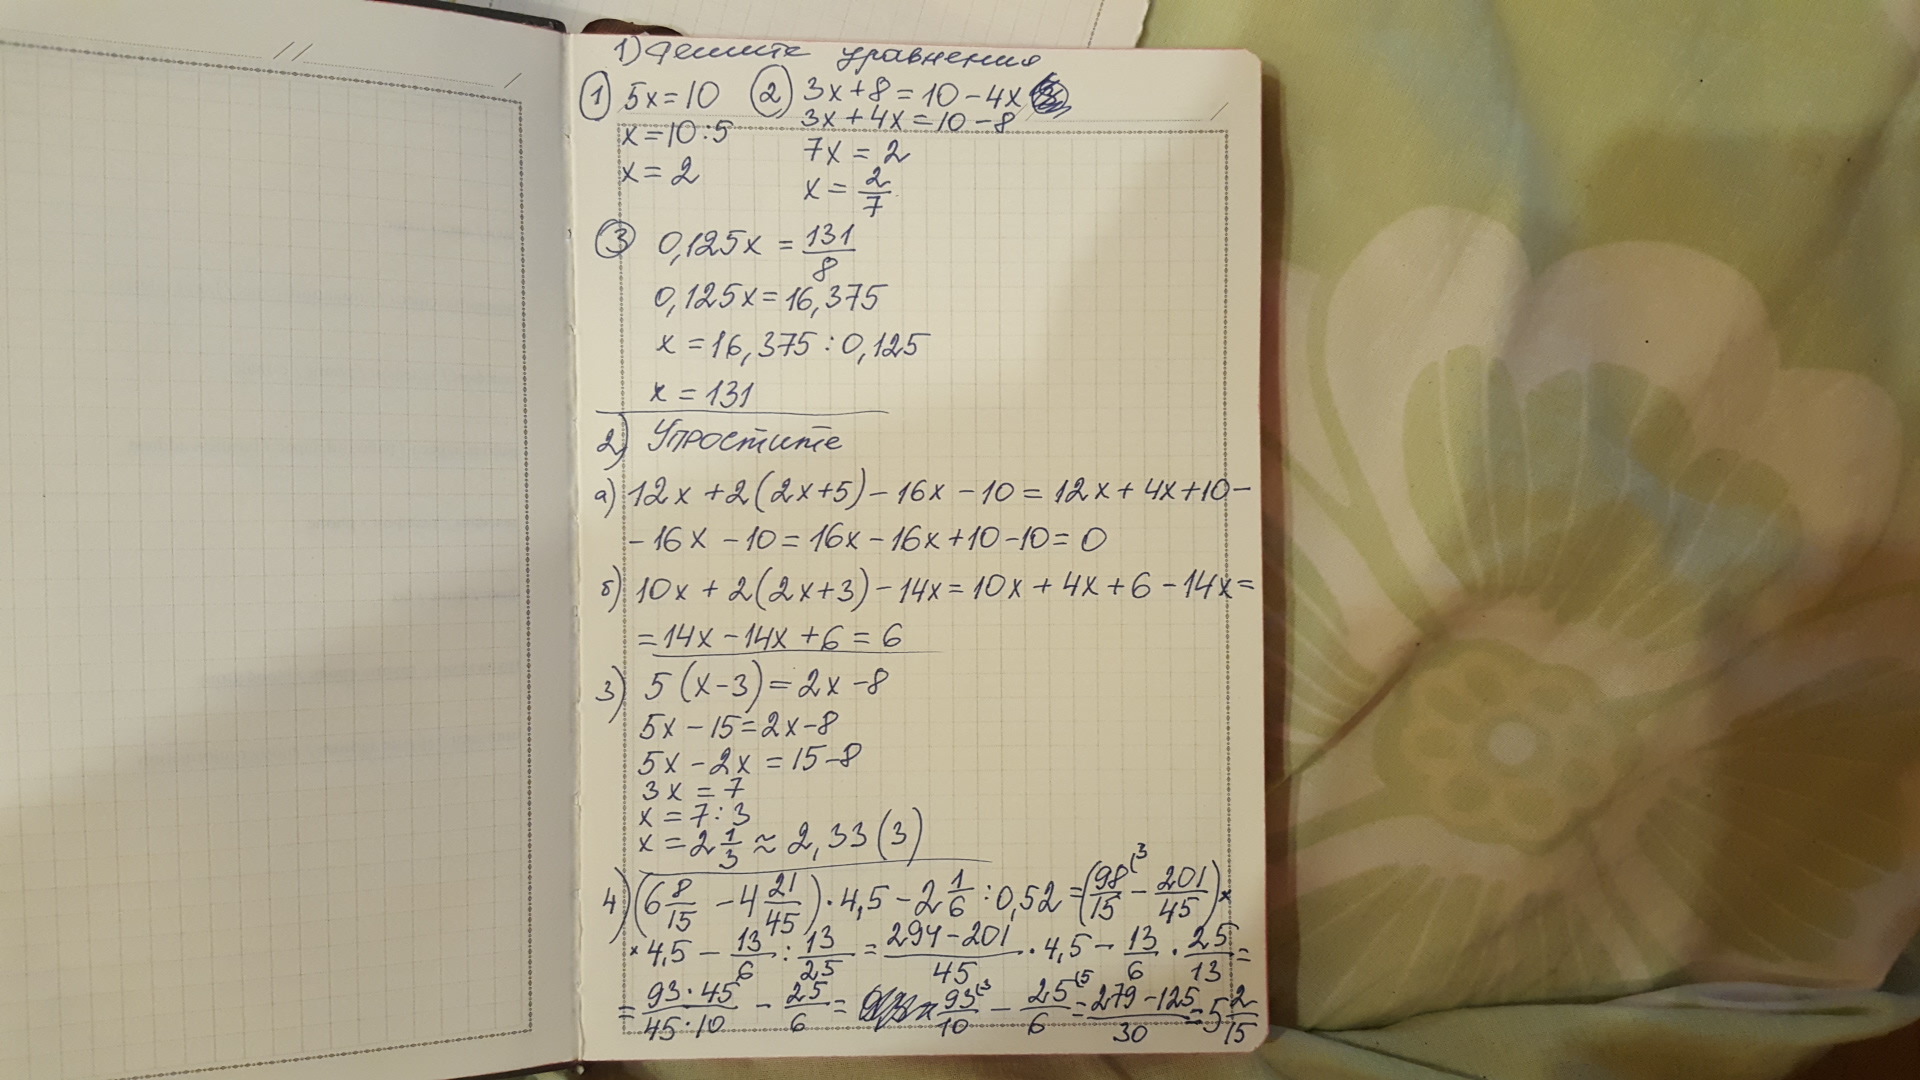 1) Решите уравнения
① 5x=10 ② 3x+8=10-4x
x=10:5 3x+4x=10-8
x=2 7x=2
x=2/7
③ 0,125x=131/8
0,125x=16,375
x=16,375:0,125
x=131
2) Упростите
а) 12x+2(2x+5)-16x-10=12x+4x+10-
-16x-10=16x-16x+10-10=0
б) 10x+2(2x+3)-14x=10x+4x+6-14x=
=14x-14x+6=6
3) 5(x-3)=2x-8
5x-15=2x-8
5x-2x=15-8
3x=7
x=7:3
x=2 1/3≈2,33(3)
4) (6 8/15-4 21/45)·4,5-2 1/6:0,52=(98/15⁽³-201/45)×
×4,5-13/6:13/25=294-201/45·4,5-13/6·25/13=
=93·45/45·10-25/6=93/10⁽³-25/6⁽⁵=279-125/30=5 2/15